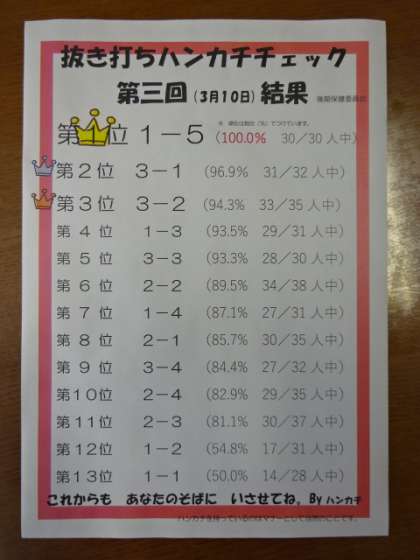 抜き打ちハンカチチェック
第三回(3月10日)結果 後期保健委員会
※ 順位は割合(%)でつけています。
第1位 1-5 (100.0% 30/30人中)
第2位 3-1 (96.9% 31/32人中)
第3位 3-2 (94.3% 33/35人中)
第4位 1-3 (93.5% 29/31人中)
第5位 3-3 (93.3% 28/30人中)
第6位 2-2 (89.5% 34/38人中)
第7位 1-4 (87.1% 27/31人中)
第8位 2-1 (85.7% 30/35人中)
第9位 3-4 (84.4% 27/32人中)
第10位 2-4 (82.9% 29/35人中)
第11位 2-3 (81.1% 30/37人中)
第12位 1-2 (54.8% 17/31人中)
第13位 1-1 (50.0% 14/28人中)
これからも あなたのそばに いさせてね。By ハンカチ
ハンカチを持っているのはマナーとして当然のことです。